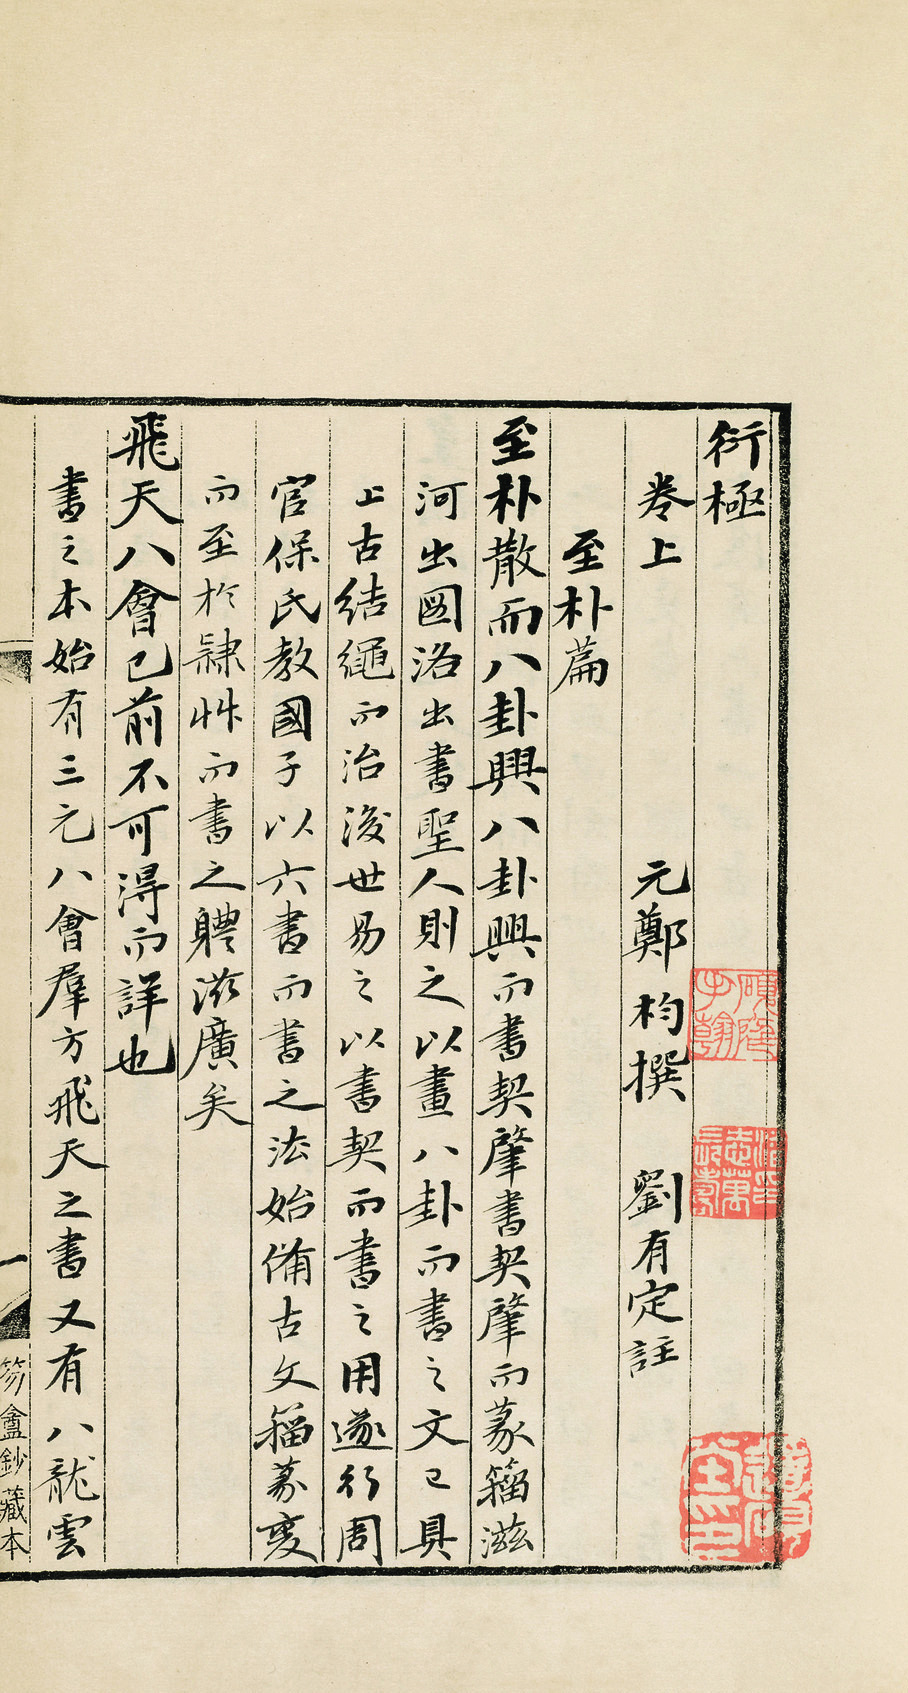 衍極
卷上　元鄭杓撰　劉有定註
至朴篇
至朴散而八卦興八卦興而書契肇書契肇而篆籀滋
河出圖洛出書聖人則之以畫八卦而書之文已具
上古結繩而治後世易之以書契而書之用遂行周
官保氏教國子以六書而書之法始備古文籀篆變
而至於隸艸而書之體滋廣矣
飛天八會已前不可得而詳也
書之本始有三元八會羣方飛天之書又有八龍雲
笏盦鈔藏本